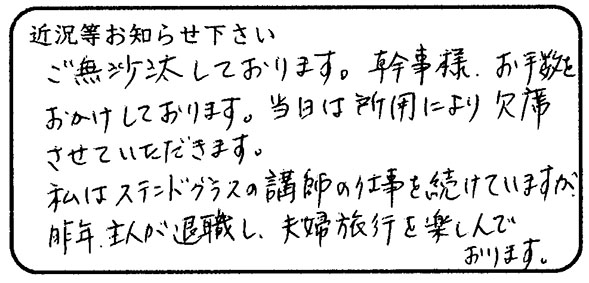 近況等お知らせ下さい
ご無沙汰しております。幹事様、お手数を
おかけしております。当日は所用により欠席
させていただきます。
私はステンドグラスの講師の仕事を続けていますが、
昨年、主人が退職し、夫婦旅行を楽しんで
おります。